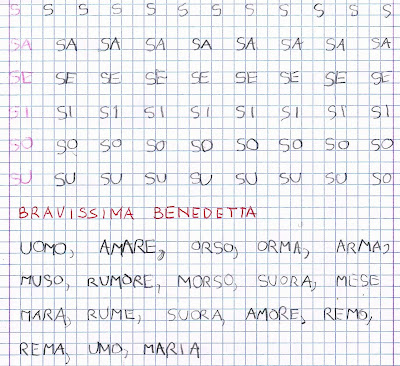 S S S S S S S S S
SA SA SA SA SA SA SA SA SA
SE SE SE SE SE SE SE SE SE
SI SI SI SI SI SI SI SI SI
SO SO SO SO SO SO SO SO SO
SU SU SU SU SU SU SU SU SO
BRAVISSIMA BENEDETTA
UOMO, AMARE, ORSO, ORMA, ARMA,
MUSO, RUMORE, MORSO, SUORA, MESE
MARA, RUME, SUORA, AMORE, REMO,
REMA, UMO, MARIA